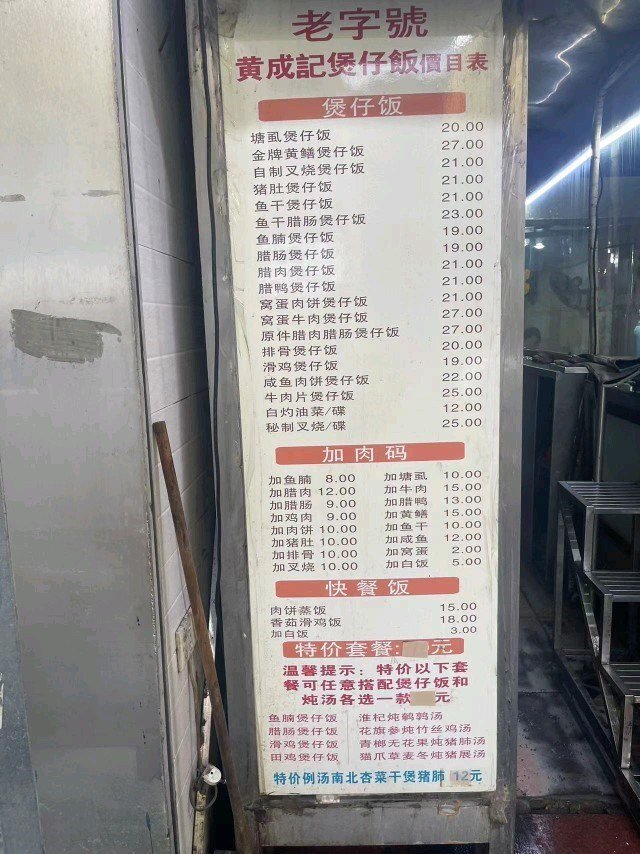 老字號
黄成記煲仔飯價目表
煲仔饭
塘虱煲仔饭 20.00
金牌黄鳝煲仔饭 27.00
自制叉烧煲仔饭 21.00
猪肚煲仔饭 21.00
鱼干煲仔饭 21.00
鱼干腊肠煲仔饭 23.00
鱼腩煲仔饭 19.00
腊肠煲仔饭 19.00
腊肉煲仔饭 21.00
腊鸭煲仔饭 21.00
窝蛋肉饼煲仔饭 21.00
窝蛋牛肉煲仔饭 27.00
原件腊肉腊肠煲仔饭 27.00
排骨煲仔饭 20.00
滑鸡煲仔饭 19.00
咸鱼肉饼煲仔饭 22.00
牛肉片煲仔饭 25.00
白灼油菜/碟 12.00
秘制叉烧/碟 25.00
加肉码
加鱼腩 8.00 加塘虱 10.00
加腊肉 12.00 加牛肉 15.00
加腊肠 9.00 加腊鸭 13.00
加鸡肉 9.00 加黄鳝 15.00
加肉饼 10.00 加鱼干 10.00
加猪肚 10.00 加咸鱼 12.00
加排骨 10.00 加窝蛋 2.00
加叉烧 10.00 加白饭 5.00
快餐饭
肉饼蒸饭 15.00
香茹滑鸡饭 18.00
加白饭 3.00
特价套餐: 元
温馨提示：特价以下套
餐可任意搭配煲仔饭和
炖汤各选一款 元
鱼腩煲仔饭 淮杞炖鹌鹑汤
腊肠煲仔饭 花旗参炖竹丝鸡汤
滑鸡煲仔饭 青榄无花果炖猪肺汤
田鸡煲仔饭 猫爪草麦冬炖猪展汤
特价例汤南北杏菜干煲猪肺 12元